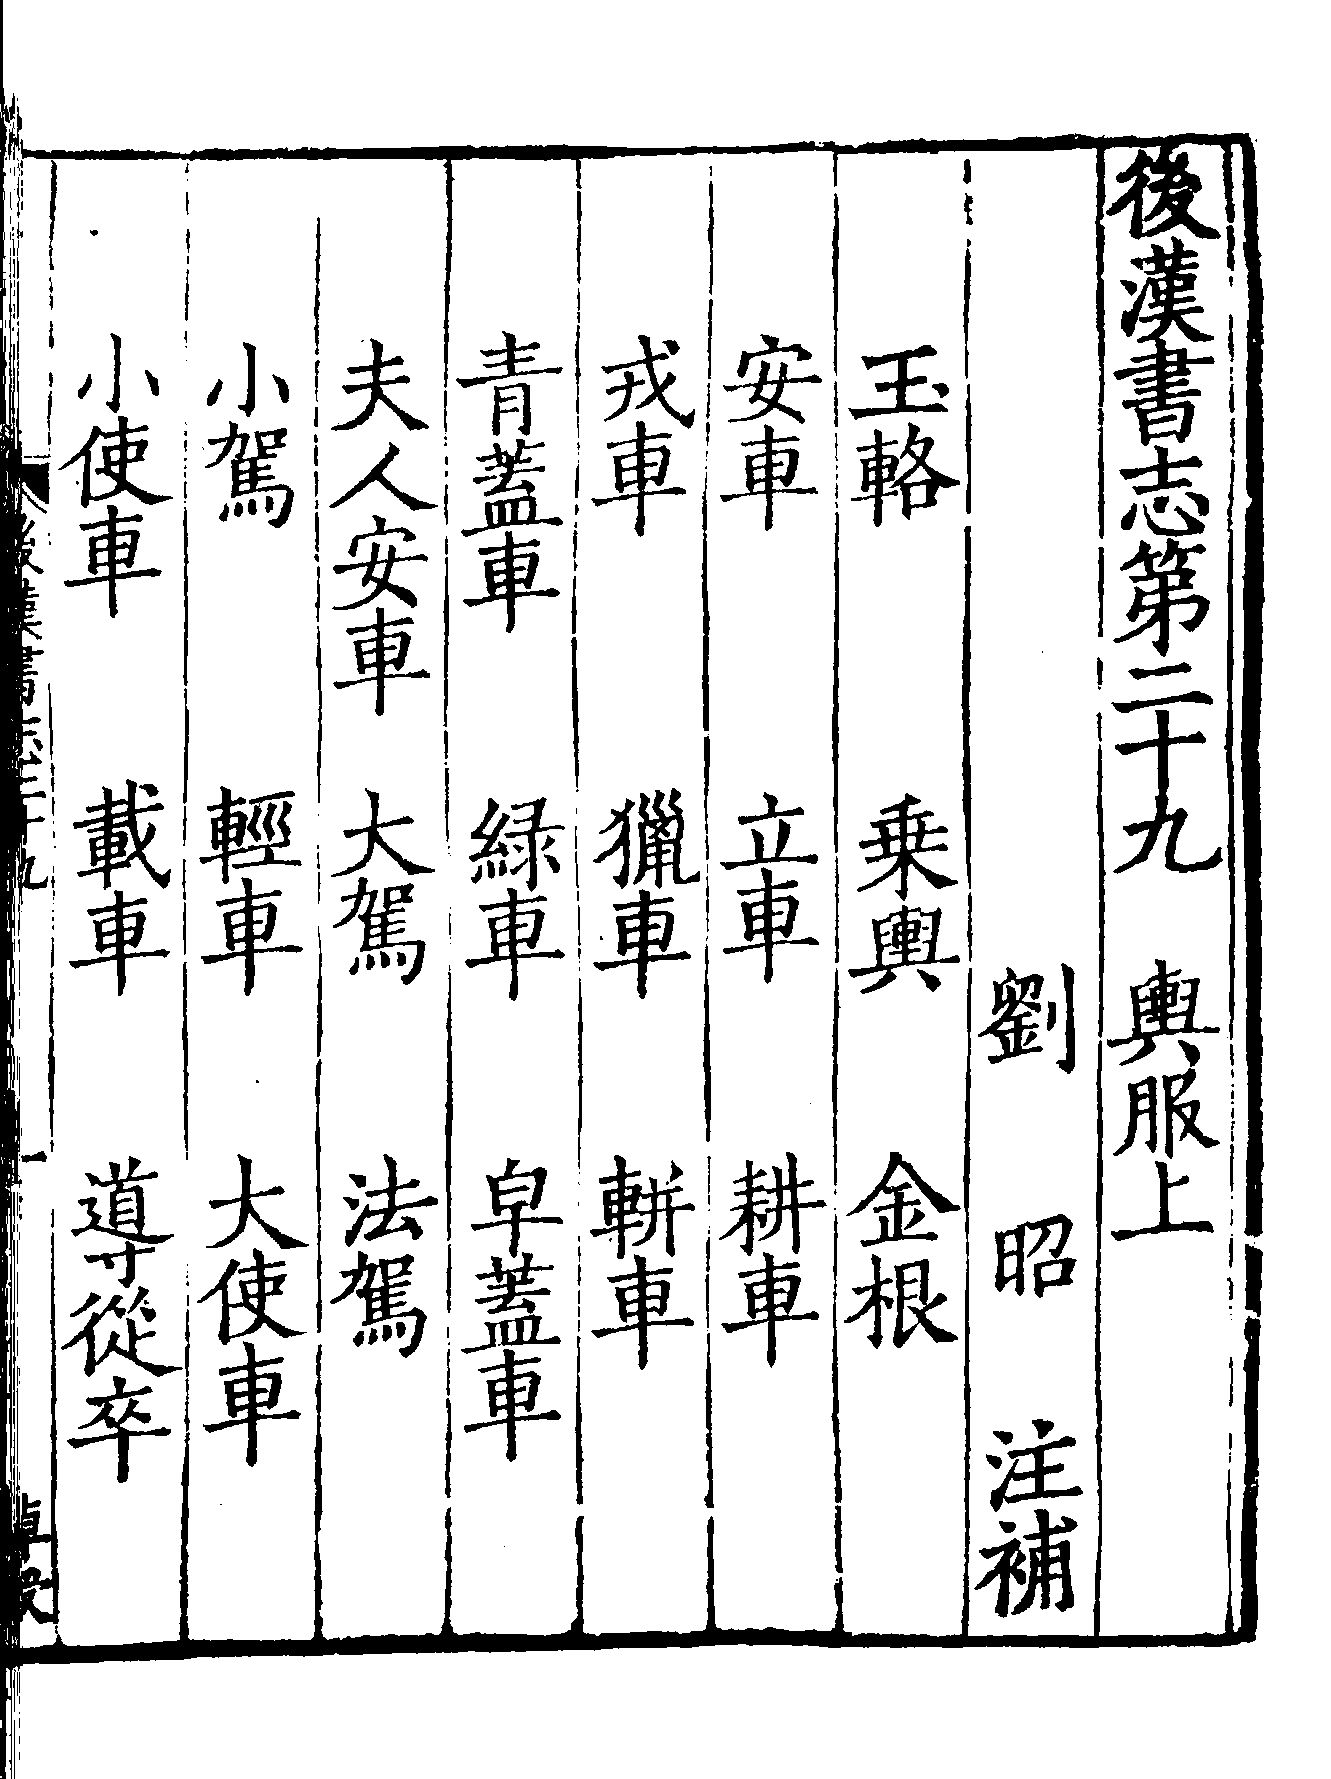 後漢書志第二十九　輿服上
劉　昭　注補
玉輅　乗輿　金根
安車　立車　耕車
戎車　獵車　軿車
青蓋車　緑車　皁蓋車
夫人安車　大駕　法駕
小駕　輕車　大使車
小使車　載車　導從卒
後漢書志二十九　一